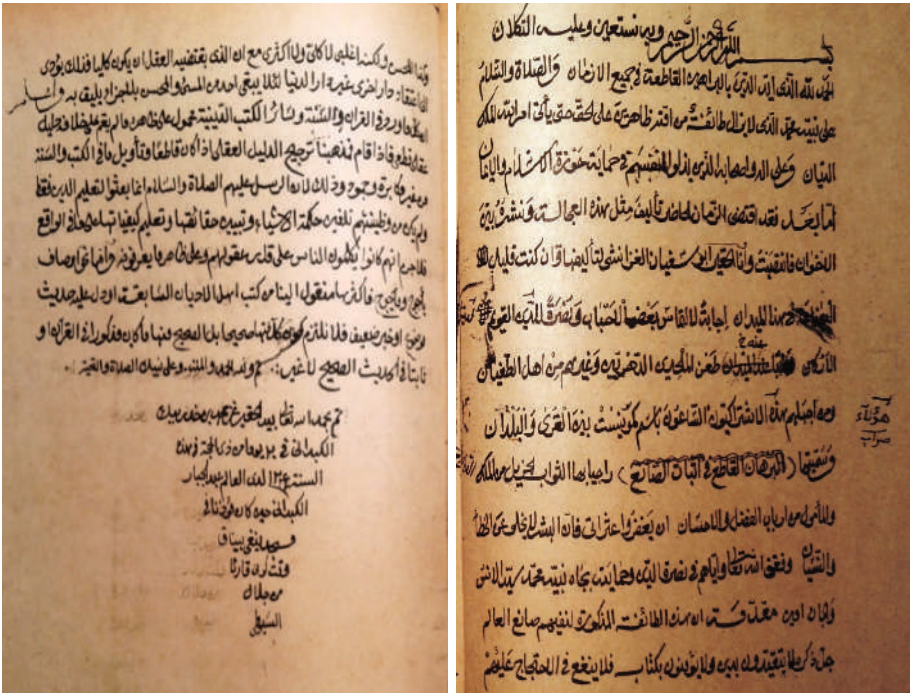 بسم الله الرحمن الرحيم وبه نستعين وعليه التكلان
الحمد لله الذي ايد الدين بالبراهين القاطعة في جميع الازمان والصلاة والسلام
على نبيه محمد الذي لا يزال طائفة من امته ظاهرين على الحق حتى يأتي امر الله الملك
الديان وعلى آله واصحابه الذين بذلوا انفسهم في حماية حوزة الاسلام والايمان
اما بعد فقد اقتضى الزمان الحاضر تأليف مثل هذه العجالة ونشره بين
الاخوان فانتهيت وانا الحقير ابو سفيان الغزانشي لتأليفها وان كنت قليل
في هذا الميدان اجابة لالتماس بعض الاحباب ونصرة للدين القوي
الاركان طعن الملحدين الدهريين وغيرهم من اهل الطغيان
ومن اجلهم هذه الاشتراكيون الساعون باسم كمونيست بين القرى والبلدان
وسميتها (البرهان القاطع في اثبات الصانع) راجيا بها الثواب الجزيل من الملك
والمأمول من ارباب الفضل والاحسان ان يغفروا عثراتي فان البشر لا يخلو عن الخطأ
والنسيان وفقني الله تعالى واياهم في نصرة الدين وحمايته بجاه نبيه محمد سيد الانس
والجان امين مقدمة ان هذه الطائفة المذكورة لنفيهم صانع العالم
جل ذكره لا يتقيدون بدين ولا يؤمنون بكتاب فلا ينفع في الاحتجاج عليهم
هؤلاء
وفي المحسن ولكنه اغلبي لا كلي ولا اكثري مع ان الذي يقتضيه العقل ان يكون كليا فذلك يؤدي
الى اعتقاد دار اخرى غير هذه الدنيا لئلا يبقى احد من المسيء والمحسن بلا جزاء يليق به واعلم
ان كل ما ورد في القران والسنة وسائر الكتب الدينية محمول على ظاهره ما لم يقم على خلافه دليل
عقلي قطعي فاذا قام فمذهبنا ترجيح الدليل العقلي اذا كان قاطعا وتأويل ما في الكتب والسنة
وذلك لان الرسل عليهم الصلاة والسلام انما بعثوا لتعليم الدين فقط
ولم يكن من وظيفتهم تلقين حكمة الاشياء وتبيين حقائقها وتعليم كيفياتها على ما هي في الواقع
فلا جرم انهم كانوا يكلمون الناس على قدر عقولهم وعلى ما يعرفونه وانما في اوصاف
يأجوج ومأجوج فاكثرها منقول الينا من كتب اهل الاديان السابقة او دل عليه حديث
موضوع او خبر ضعيف فلا نلتزم كون كلها صحيحا بل الصحيح منها ما كان مذكورا في القرآن و
ثابتا في الحديث الصحيح لا غير تم ولله الحمد والمنة وعلى نبيه الصلاة والتحية
تم بحمد الله تعالى بيد الحقير محمد بيك
الكبداني في يوما من ذي الحجة في هذه
السنة ١٣٤٤ لدى العالم عبد الجبار
الكبداني حين كان قاضيا في
ينغي بيناق
وقت كان قارئا
من جلال
السيوطي